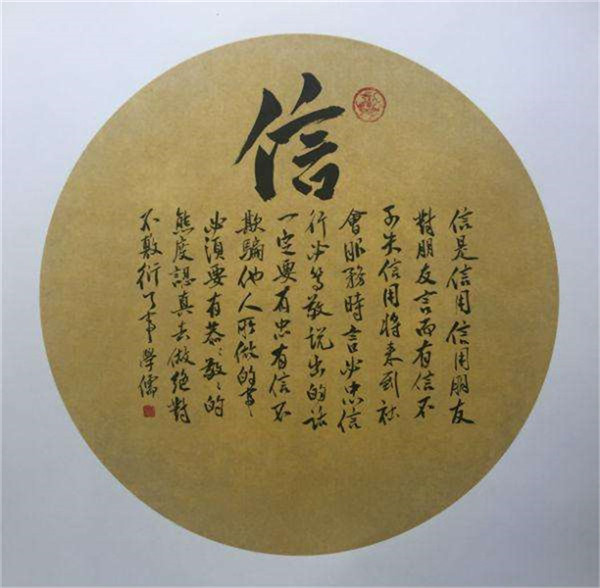 信
信是信用信用朋友
對朋友言而有信不
可失信用將来到社
會服務時言必忠信
行必篤敬説出的話
一定要有忠有信不
欺騙他人所做的事
必須要有恭々敬々的
態度認真去做絶對
不敷衍了事 學儒